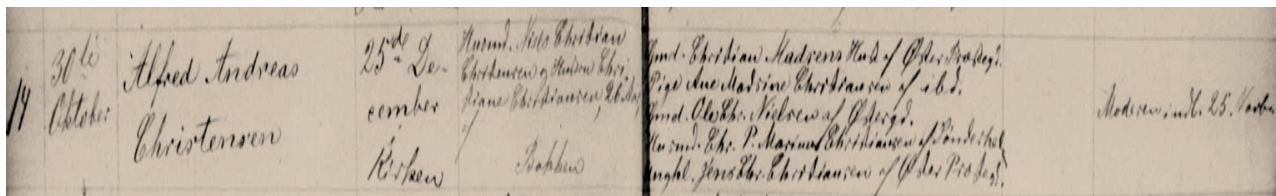 14
30te
Oktober
Alfred Andreas
Christensen
25de De-
cember
Kirken
Husmd. Niels Christian
Christensen og Hustru Chri-
stiane Christiansen, 26 Aar,
af
Bakken
Gmd. Christian Madsens Hust. af Øster
Pige Ane Madsine Christiansen af ibd.
Gmd. Ole Chr. Nielsen af Østergd.
Husmd. Chr. P. Marinus Christiansen af
Unghl. Jens Chr. Christiansen af Øster
Moderen indl. 25. Novbr.